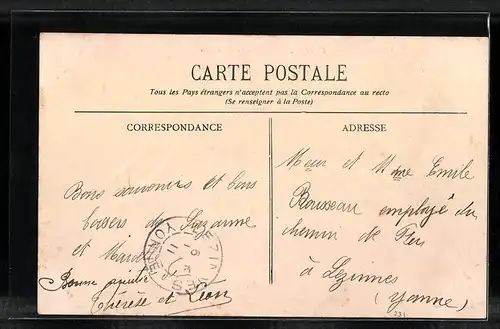 CARTE POSTALE
Tous les Pays étrangers n'acceptent pas la Correspondance au recto
(Se renseigner à la Poste)
CORRESPONDANCE
Bons souvenirs et bons
baisers de Suzanne
et
Bonne
Thérèse et Léon
LEZINNES
YONNE
ADRESSE
Mr et Mme Emile
Rousseau employé du
chemin de Fer
à Lézinnes
(Yonne)